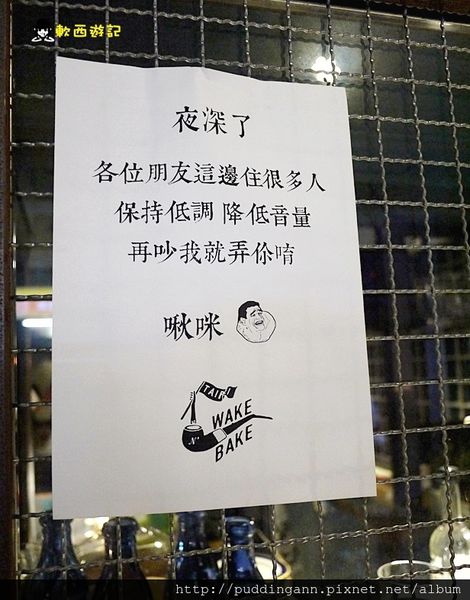 軟西遊記
夜深了
各位朋友這邊住很多人
保持低調 降低音量
再吵我就弄你唷
啾咪
TAIPEI
WAKE
N'
BAKE
http://puddingann.pixnet.net/album